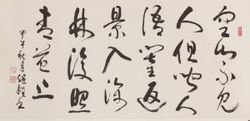 空山不見
人但聞人
語響返
景入深
林復照
青苔上
甲午秋月